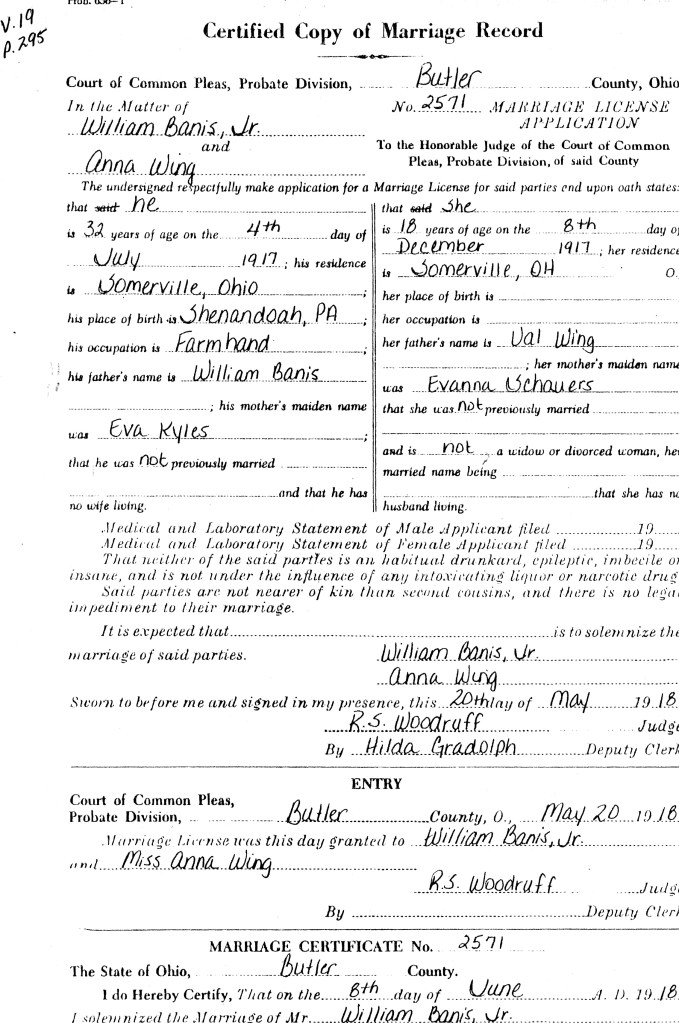 V.19
p.295
Certified Copy of Marriage Record
Court of Common Pleas, Probate Division, Butler County, Ohio
In the Matter of
No. 2571 MARRIAGE LICENSE
APPLICATION
William Banis, Jr.
and
Anna Wing
To the Honorable Judge of the Court of Common
Pleas, Probate Division, of said County
The undersigned respectfully make application for a Marriage License for said parties and upon oath states:
that said he
is 32 years of age on the 4th day of
July 1917; his residence
is Somerville, Ohio;
his place of birth is Shenandoah, PA;
his occupation is Farmhand;
his father's name is William Banis
; his mother's maiden name
was Eva Kyles;
that he was not previously married
and that he has
no wife living.
that said she
is 18 years of age on the 8th day of
December 1917; her residence
is Somerville, OH O.
her place of birth is
her occupation is
her father's name is Val Wing
; her mother's maiden name
was Evanna Schauers
that she was not previously married
and is not a widow or divorced woman, her
married name being
that she has no
husband living.
Medical and Laboratory Statement of Male Applicant filed 19
Medical and Laboratory Statement of Female Applicant filed 19
That neither of the said parties is an habitual drunkard, epileptic, imbecile or
insane, and is not under the influence of any intoxicating liquor or narcotic drug
Said parties are not nearer of kin than second cousins, and there is no lega
impediment to their marriage.
It is expected that is to solemnize the
marriage of said parties. William Banis, Jr.
Anna Wing
Sworn to before me and signed in my presence, this 20th day of May 1918.
R.S. Woodruff Judge
By Hilda Gradolph Deputy Clerk
ENTRY
Court of Common Pleas,
Probate Division, Butler County, O., May 20 1918.
Marriage License was this day granted to William Banis, Jr.
and Miss Anna Wing
R.S. Woodruff Judge
By Deputy Clerk
MARRIAGE CERTIFICATE No. 2571
The State of Ohio, Butler County.
I do Hereby Certify, That on the 8th day of June A. D. 1918
I solemnized the Marriage of Mr. William Banis, Jr.